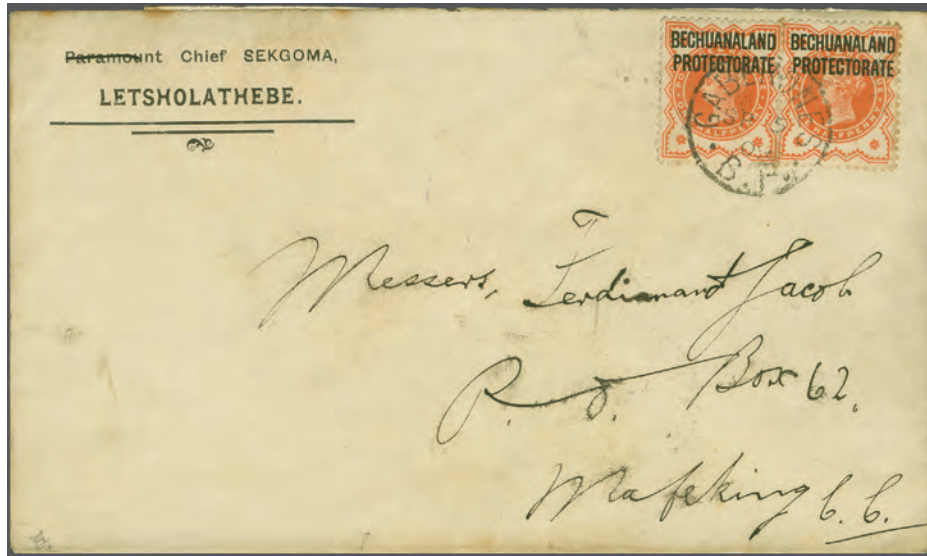 Paramount Chief SEKGOMA,
LETSHOLATHEBE.
BECHUANALAND PROTECTORATE
BECHUANALAND PROTECTORATE
B.P.
Messers, Ferdianand Jacob
P. O. Box 62.
Mafeking C. C.